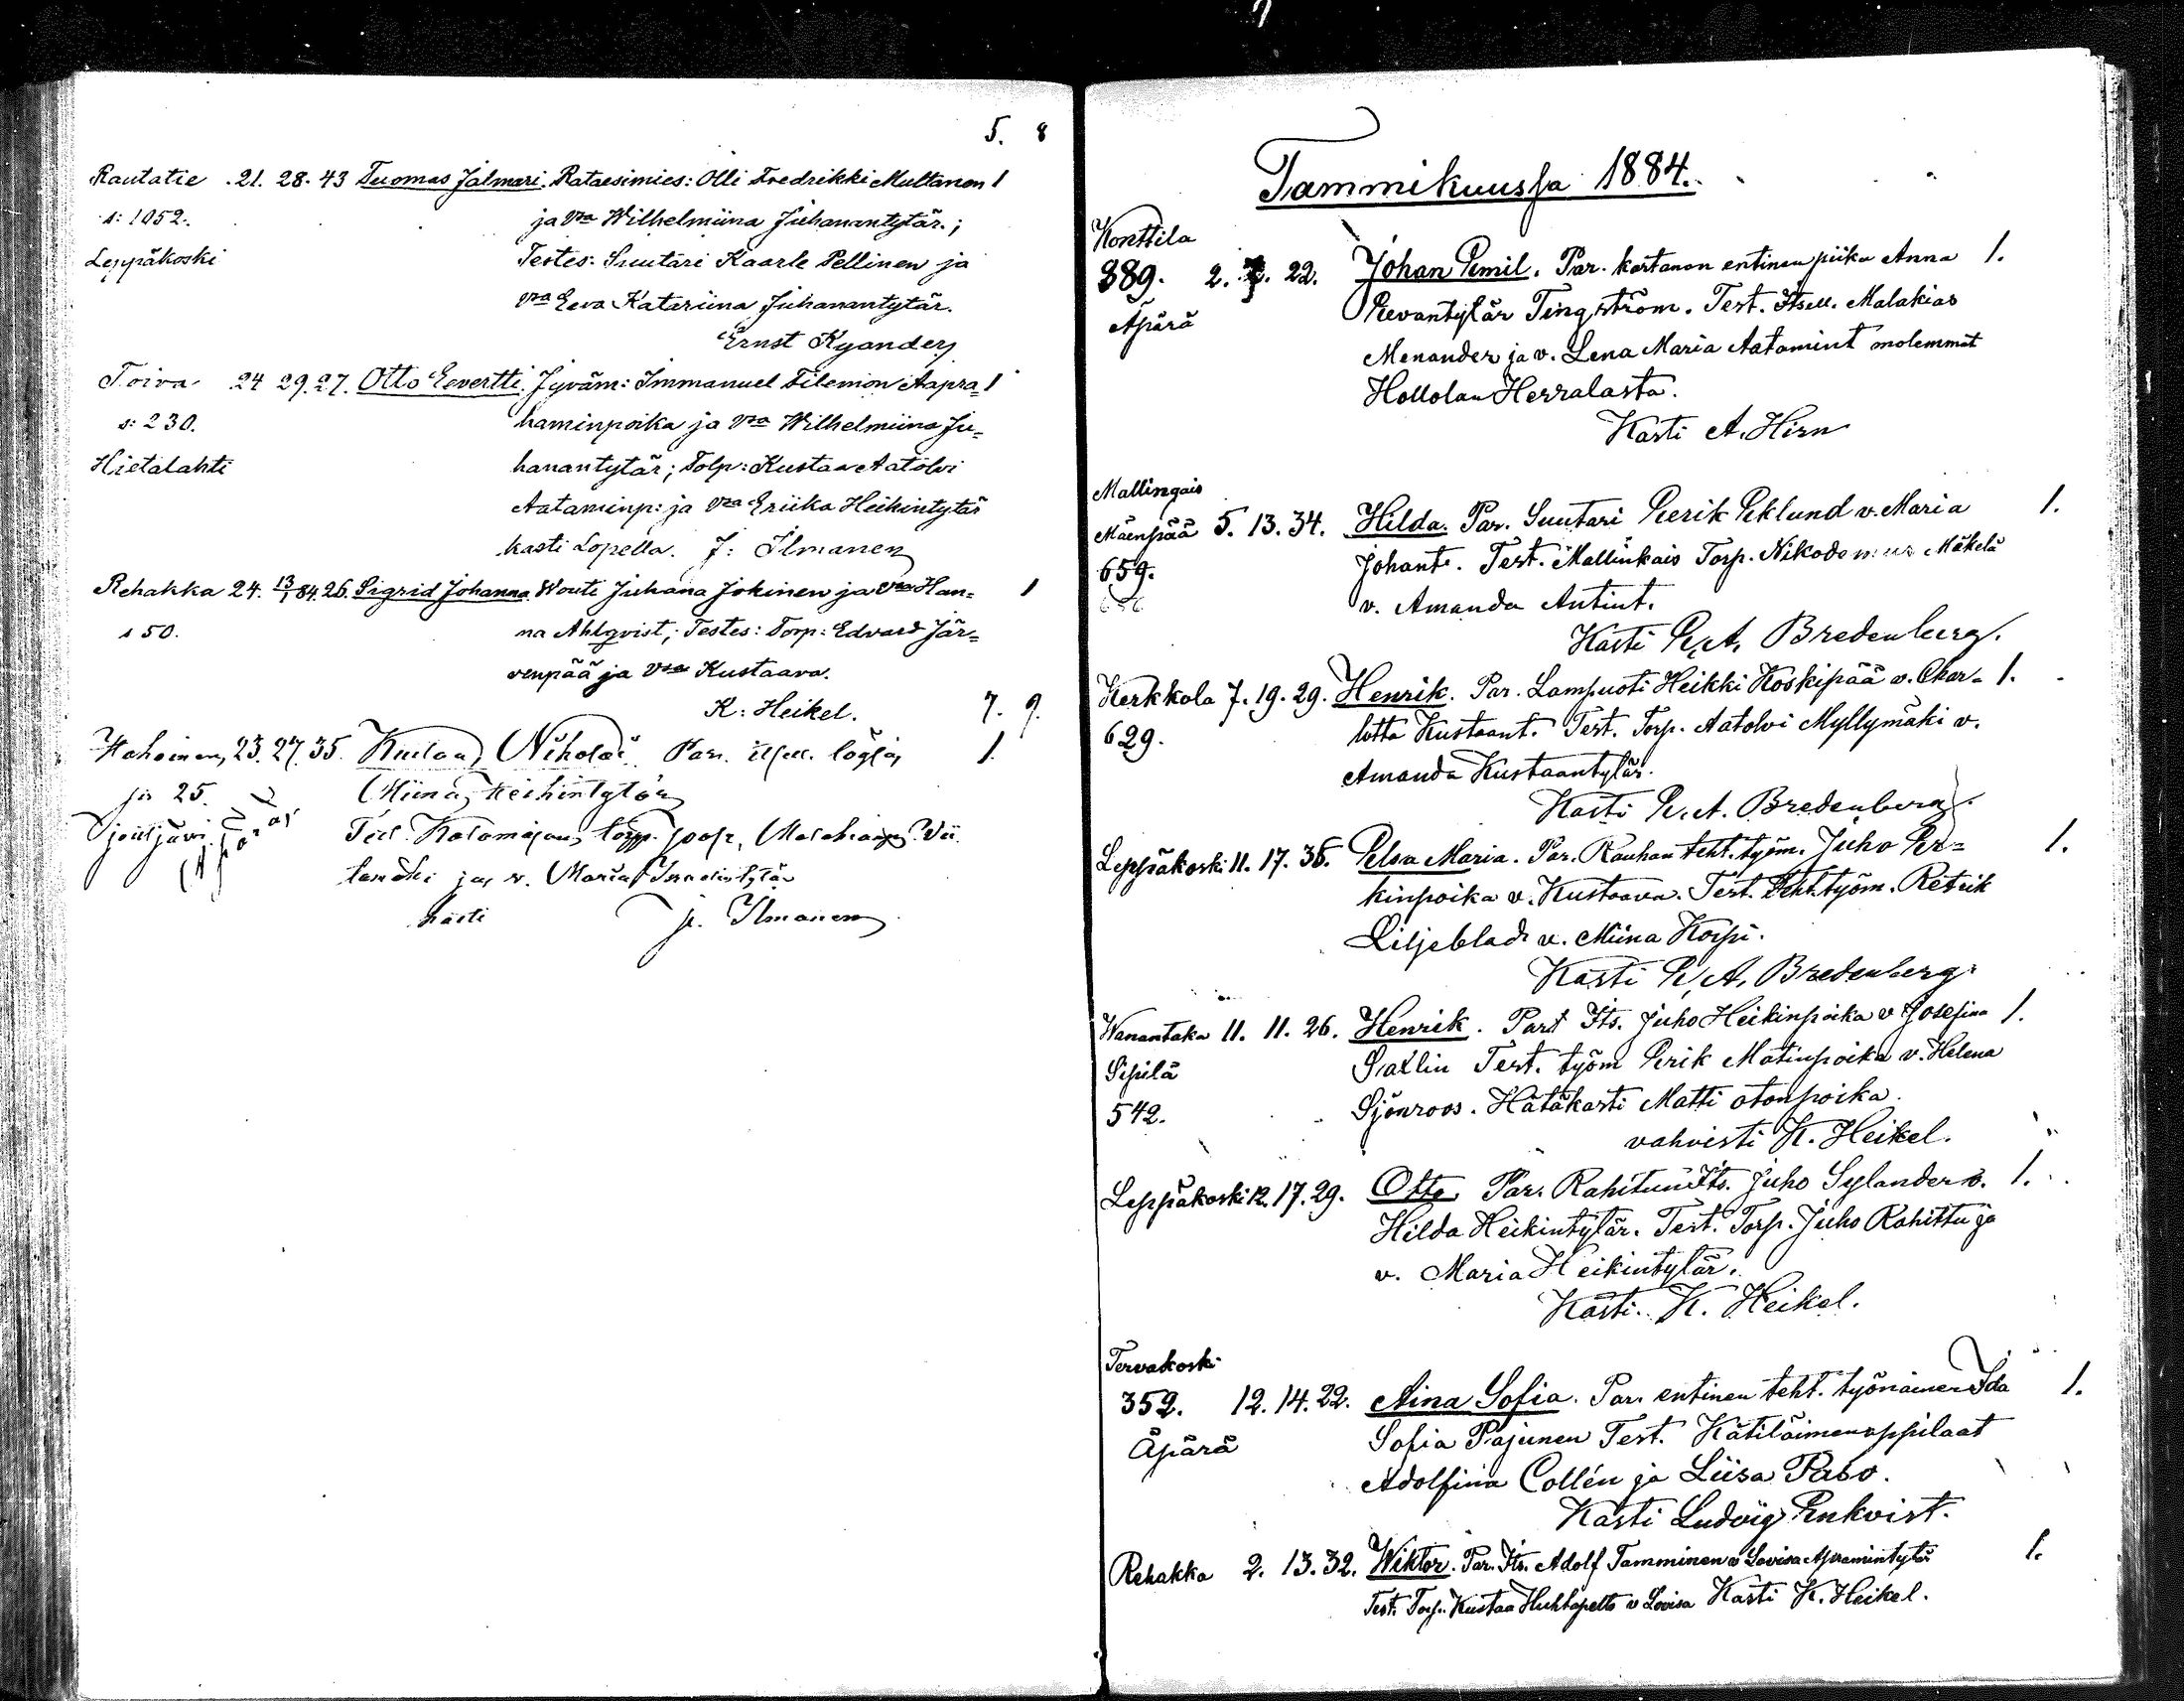 5. 8
Rautatie 21. 28. 43 Tuomas Jalmari. Rataesimies: Olli Fredrikki Multanen 1
s: 1052. ja vra Wilhelmiina Juhanantytär.;
Leppäkoski Testes: Suutari Kaarle Pellinen ja
vra Eeva Katariina Juhanantytär.
Ernst Kyander
Toiva 24 29. 27. Otto Eevertti. Jyväm: Immanuel Filemon Aapra= 1
s: 230. haminpoika ja vra Wilhelmiina Ju=
Hietalahti hanantytär; Tolp: Kustaa Aatolvi
Aataminp: ja vra Eriika Heikintytär
kasti Lopella. J: Ilmanen
Rehakka 24. 13/1 84. 26. Sigrid Johanna. Wouti Juhana Jokinen ja vra Han= 1
s 50. na Ahlqvist; Testes: Torp: Edvard Jär=
venpää ja vra Kustaava.
K: Heikel. 7. 9.
23. 27. 35. Kustaa Nikolai. Par. itsell. 1
25. Miina Heikintytär
ja v. Maria
kasti J. Ilmanen
Tammikuussa 1884.
Konttila
889. 2. 7. 22. Johan Emil. Par. kartanon entinen piika Anna 1.
Äpärä Eevantytär Tingström. Test. Itsell. Malakias
Menander ja v. Lena Maria Aatamint molemmat
Hollolan Herralasta.
Kasti A. Hirn
Mallingais
Mäenpää 5. 13. 34. Hilda. Par. Suutari Eerik Eklund v. Maria 1.
659. Johant. Test. Mallinkais Torp. Nikodemus Mäkelä
v. Amanda Antint.
Kasti E. A. Bredenberg.
Kerkkola 7. 19. 29. Henrik. Par. Lampuoti Heikki Koskipää v. Char= 1.
629. lotta Kustaant. Test. Torp. Aatolvi Myllymäki v.
Amanda Kustaantytär.
Kasti E. A. Bredenberg.
Leppäkoski 11. 17. 35. Elsa Maria. Par. Rauhan teht. työm. Juho Er= 1.
kinpoika v. Kustaava. Test. Teht. työm. Retrik
Liljeblad v. Miina Korpi.
Kasti E. A. Bredenberg.
Wanantaka 11. 11. 26. Henrik. Par. Its. Juho Heikinpoika v Josefina 1.
Sipilä Saxlin Test. työm Erik Matinpoika v. Helena
542. Sjönroos. Hätäkasti Matti Otonpoika.
vahvisti K. Heikel.
Leppäkoski 12. 17. 29. Otto. Par. Rahitun Its. Juho Sylander v. 1.
Hilda Heikintytär. Test. Torp. Juho Rahittu ja
v. Maria Heikintytär.
Kasti. K. Heikel.
Tervakoski
352. 12. 14. 22. Aina Sofia. Par. entinen teht. työnainen Ida 1.
Äpärä Sofia Pajunen Test. Kätilöimenoppilaat
Adolfina Collén ja Liisa Paso.
Kasti Ludvig Enkvist.
Rehakka 2. 13. 32. Wiktor. Par. Its. Adolf Tamminen v Lovisa Apramintytär 1.
Test. Torp. Kustaa Huhtapelto v Lovisa Kasti K. Heikel.